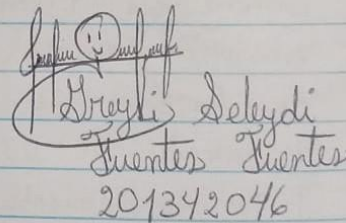 Greyli Seleydi
Fuentes Fuentes
201342046